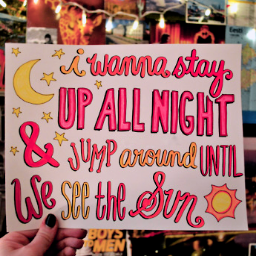 i wanna stay
UP ALL NIGHT
& JUMP around UNTIL
We see the Sun
BOYS
MEN